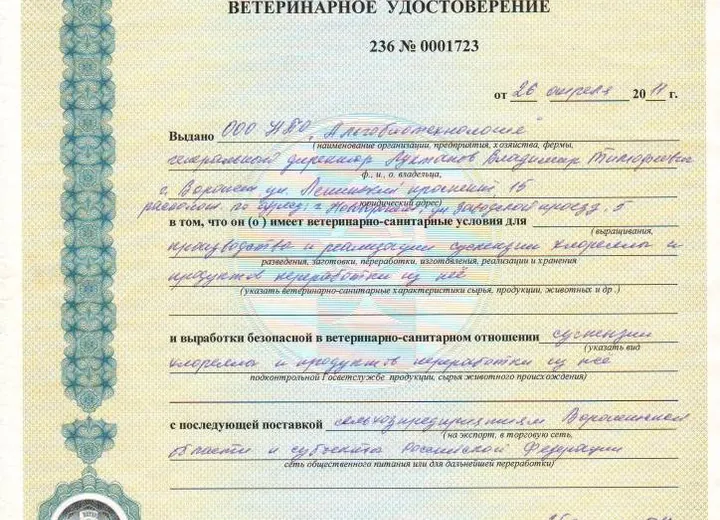 ВЕТЕРИНАРНОЕ УДОСТОВЕРЕНИЕ
236 № 0001723
от 26 апреля 2011 г.
Выдано ООО НПО „Альгобиотехнология"
(наименование организации, предприятия, хозяйства, фермы,
генеральный директор Владимир Тимофеевич
ф., и., о. владельца,
г. Воронеж ул. Ленинский проспект 15
юридический адрес)
располож. по г. ул. Заводской проезд, 5
в том, что он (о ) имеет ветеринарно-санитарные условия для
(выращивания,
производство и реализации суспензии хлореллы и
разведения, заготовки, переработки, изготовления, реализации и хранения
продуктов переработки из неё
(указать ветеринарно-санитарные характеристики сырья, продукции, животных и др .)
и выработки безопасной в ветеринарно-санитарном отношении суспензии
(указать вид
хлореллы и продуктов переработки из неё
подконтрольной Госветслужбе продукции, сырья животного происхождения)
с последующей поставкой сельхозпредприятиям Воронежской
(на экспорт, в торговую сеть,
области и субъекта Российской Федерации
сеть общественного питания или для дальнейшей переработки)